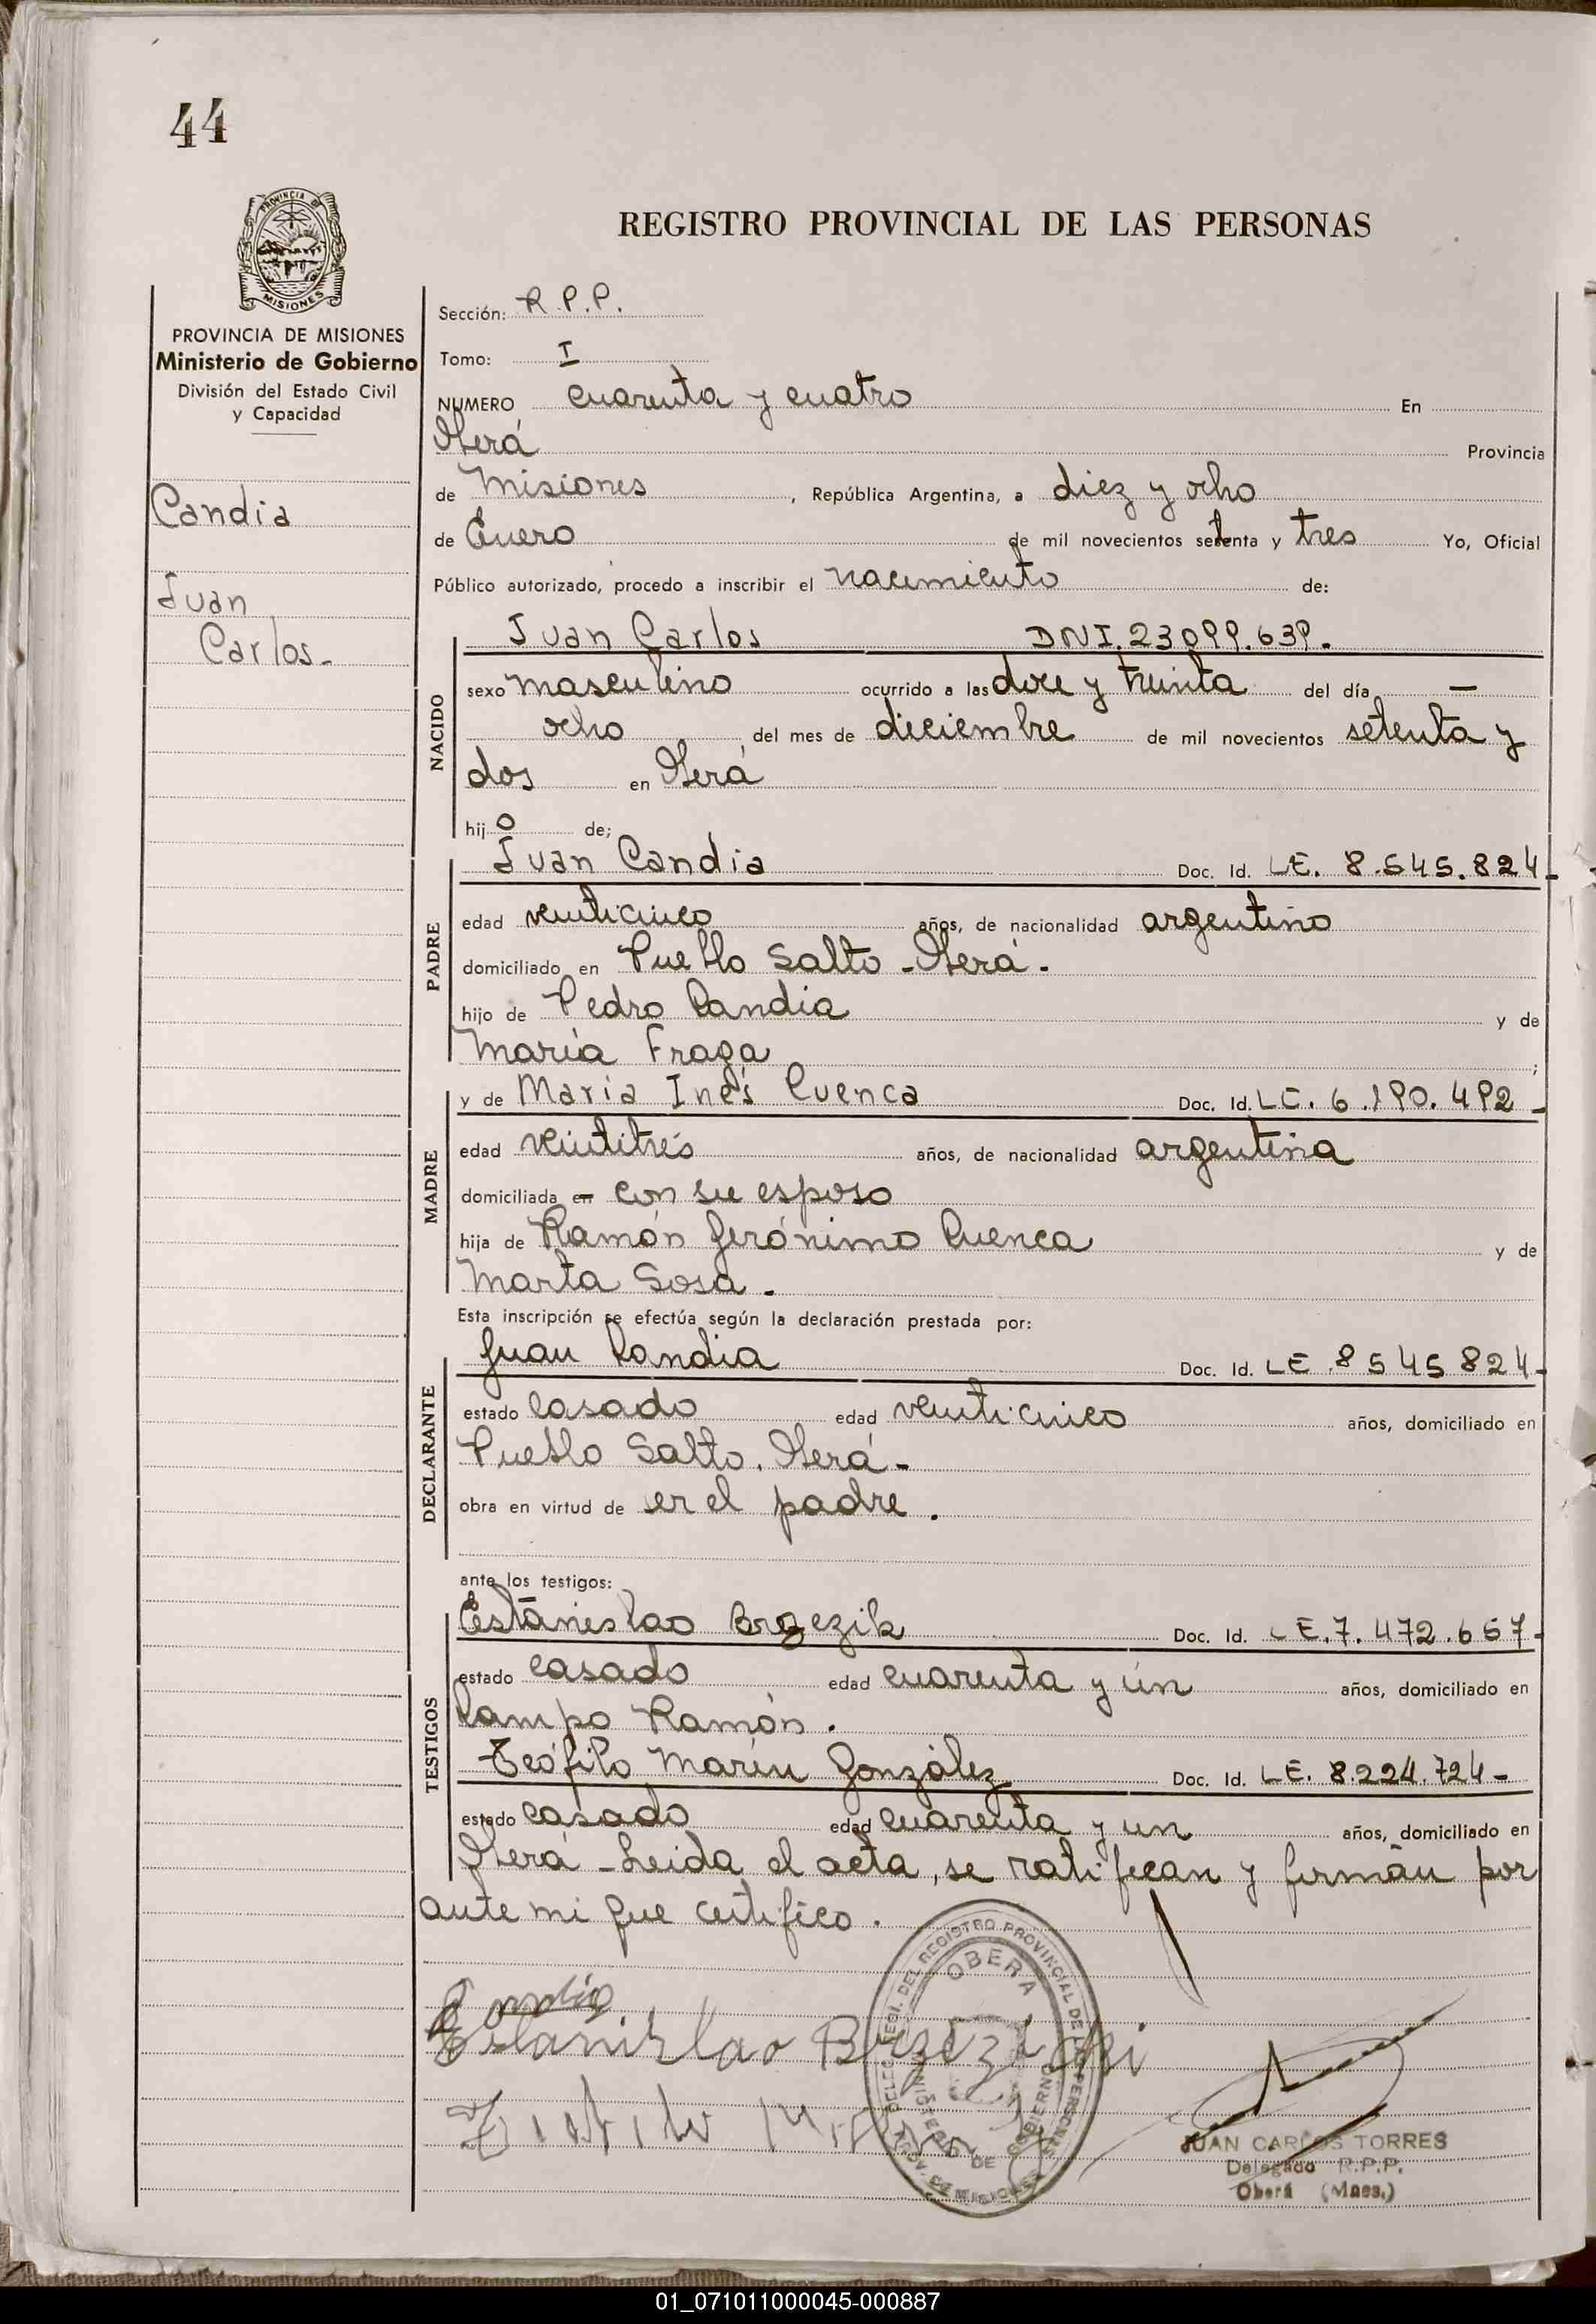 44
REGISTRO PROVINCIAL DE LAS PERSONAS
PROVINCIA DE MISIONES
PROVINCIA DE MISIONES
Ministerio de Gobierno
División del Estado Civil
y Capacidad
Candia
Juan
Carlos-
Sección: R.P.P.
Tomo: I
NUMERO cuarenta y cuatro En
Oberá Provincia
de Misiones, República Argentina, a diez y ocho
de Enero de mil novecientos setenta y tres Yo, Oficial
Público autorizado, procedo a inscribir el nacimiento de:
NACIDO
Juan Carlos DNI.23099.639.
sexo masculino ocurrido a las doce y treinta del día —
ocho del mes de diciembre de mil novecientos setenta y
dos en Oberá
hijo de;
PADRE
Juan Candia Doc. Id. LE. 8.545.824-
edad veinticinco años, de nacionalidad argentino
domiciliado en Pueblo Salto - Oberá.
hijo de Pedro Candia y de
María Fraga ;
MADRE
y de Maria Inés Cuenca Doc. Id. LC. 6.190.492-
edad veintitrés años, de nacionalidad argentina
domiciliada en - con su esposo
hija de Ramón Gerónimo Cuenca y de
Marta Sosa.
Esta inscripción se efectúa según la declaración prestada por:
DECLARANTE
Juan Candia Doc. Id. LE.8545824-
estado casado edad veinticinco años, domiciliado en
Pueblo Salto. Oberá-
obra en virtud de ser el padre.
ante los testigos:
TESTIGOS
Estanislao Brzezik Doc. Id. LE.7.472.657-
estado casado edad cuarenta y un años, domiciliado en
Campo Ramón.
Teófilo Marín González Doc. Id. LE. 8.224.724-
estado casado edad cuarenta y un años, domiciliado en
Oberá - Leida el acta, se ratifican y firman por
ante mi que certifico.
Candia
Estanislao
DELEG. DEL REGISTRO PROVINCIAL DE LAS PERSONAS
OBERA
MINISTERIO DE GOBIERNO
PROV. DE MISIONES
JUAN CARLOS TORRES
Delegado R.P.P.
Oberá (Mnes.)
01_071011000045-000887